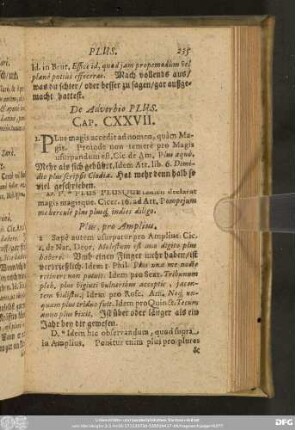 PLUS. 235
Id. in Brut. Effice id, quod jam propemodum vel
planè potius effeceras. Mach vollends aus/
was du schier/ oder besser zu sagen/ gar außge-
macht hattest.
De Adverbio PLUS.
CAP. CXXVII.
PLus magis accedit ad nomen, quàm Ma-
gis. Proinde non temerè pro Magis
usurpandum est, Cic. de Am, Plus æquo.
Mehr als sich gebühret. Idem Att. lib. 6. Dimi-
dio plus scripsit Clodia. Hat mehr denn halb so
viel geschrieben.
PLUS PLUSQUE
magis magisque. Cicer. 18. ad Att, Pompejum
me hercule plus plusq; indies diligo.
Plus, pro Amplius.
1 Sæpè autem usurpatur pro Amplius. Cic.
1. de Nat. Deor. Molestum est uno digito plus
habere. Und einen Finger mehr haben/ ist
verdrießlich. Idem 1 Phil. Plus und me audio
retinere non potuit. Idem pro Sext.
pleb. plus viginti vulneribus acceptis, jacen-
tem vidistis. Idem pro Rosc. Am. Noj
quam plus triduo fuit. Idem pro Quinct. Tecum
anno plus vixit. Ist über oder länger als ein
Jahr bey dir gewesen.
D. * Idem hic observandum, quod supra
in Amplius. Ponitur enim plus pro plures
&